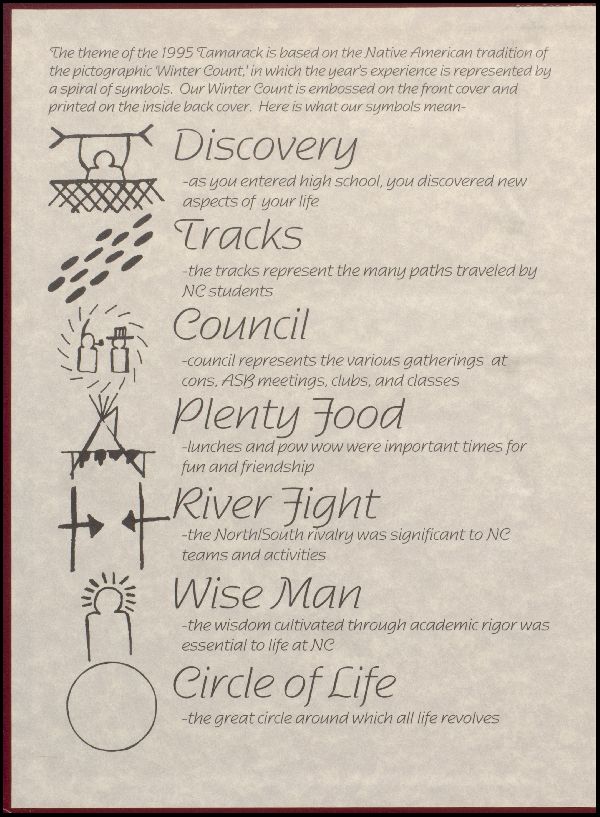 The theme of the 1995 Tamarack is based on the Native American tradition of
the pictographic 'Winter Count,' in which the year's experience is represented by
a spiral of symbols. Our Winter Count is embossed on the front cover and
printed on the inside back cover. Here is what our symbols mean-
Discovery
-as you entered high school, you discovered new
aspects of your life
Tracks
-the tracks represent the many paths traveled by
NC students
Council
-council represents the various gatherings at
cons, ASB meetings, clubs, and classes
Plenty Food
-lunches and pow wow were important times for
fun and friendship
River Fight
-the North/South rivalry was significant to NC
teams and activities
Wise Man
-the wisdom cultivated through academic rigor was
essential to life at NC
Circle of Life
-the great circle around which all life revolves